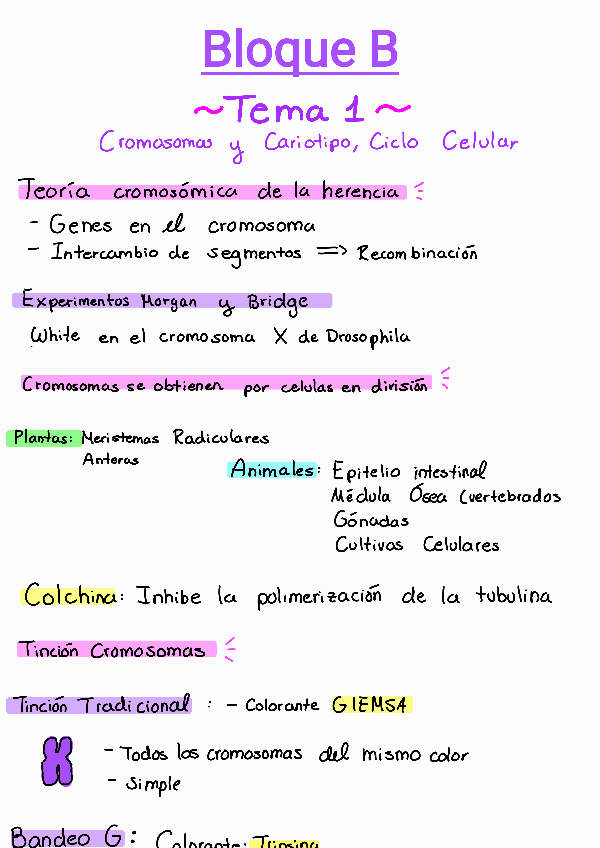 Bloque B
~Tema 1~
Cromosomas y Cariotipo, Ciclo Celular
Teoría cromosómica de la herencia
- Genes en el cromosoma
- Intercambio de segmentos => Recombinación
Experimentos Morgan y Bridge
White en el cromosoma X de Drosophila
Cromosomas se obtienen por celulas en división
Plantas: Meristemas Radiculares
Anteras
Animales: Epitelio intestinal
Médula Ósea (vertebrados
Gónadas
Cultivos Celulares
Colchina: Inhibe la polimerización de la tubulina
Tinción Cromosomas
Tinción Tradicional : - Colorante GIEMSA
- Todos los cromosomas del mismo color
- Simple
Bandeo G: Colorante: Tripsina